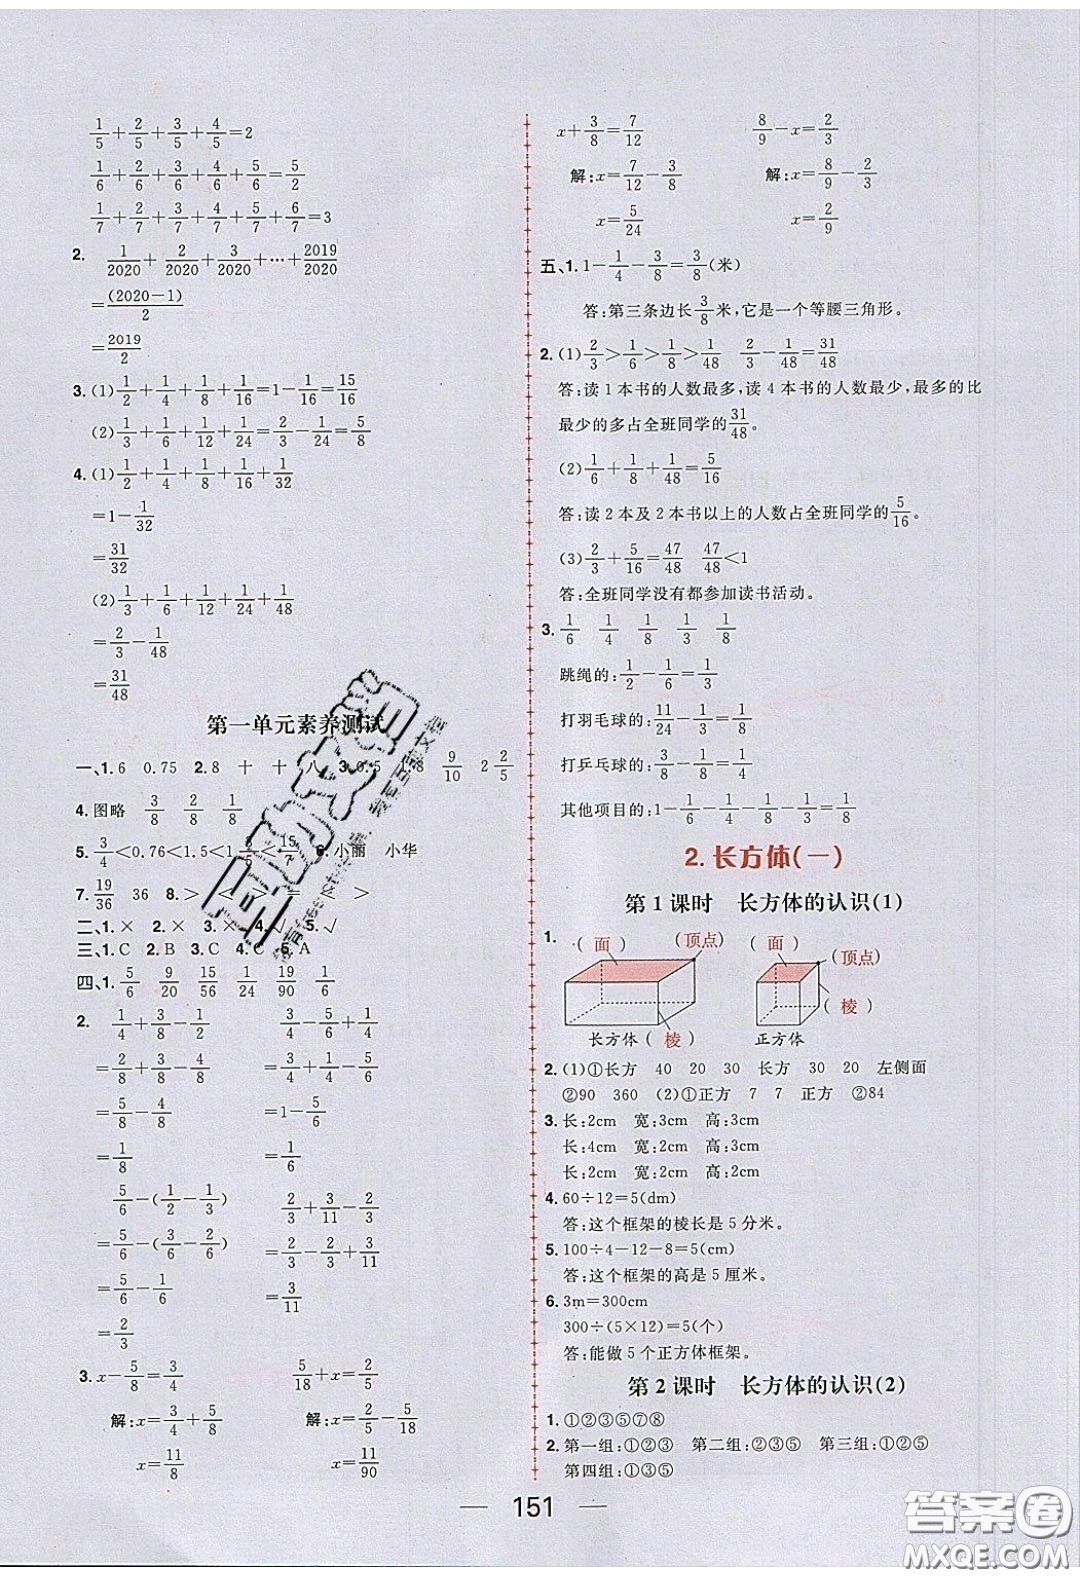 1/5+2/5+3/5+4/5=2
1/6+2/6+3/6+4/6+5/6=5/2
1/7+2/7+3/7+4/7+5/7+6/7=3
2. 1/2020+2/2020+3/2020+…+2019/2020
=(2020-1)/2
=2019/2
3. (1)1/2+1/4+1/8+1/16=1-1/16=15/16
(2)1/3+1/6+1/12+1/24=2/3-1/24=5/8
4. (1)1/2+1/4+1/8+1/16+1/32
=1-1/32
=31/32
(2)1/3+1/6+1/12+1/24+1/48
=2/3-1/48
=31/48
第一单元素养测试
一、1. 6 0.75 2. 8 十 十 八 3. 0.5 8 9/10 2 2/5
4. 图略 3/8 2/8 1/8
5. 3/4<0.76<1.5<1 /5<15/7 6. 小丽 小华
7. 19/36 36 8. > < > = < >
二、1. × 2. × 3. × 4. √ 5. √
三、1. C 2. B 3. C 4. C 5. A
四、1. 5/6 9/20 15/56 1/24 19/90 1/6
2. 1/4+3/8-1/2 3/4-5/6+1/4
=2/8+3/8-4/8 =3/4+1/4-5/6
=5/8-4/8 =1-5/6
=1/8 =1/6
5/6-(1/2-1/3) 2/3+3/11-2/3
=5/6-(3/6-2/6) =2/3-2/3+3/11
=5/6-1/6 =3/11
=2/3
3. x-5/8=3/4 5/18+x=2/5
解:x=3/4+5/8 解:x=2/5-5/18
x=11/8 x=11/90
x+3/8=7/12 8/9-x=2/3
解:x=7/12-3/8 解:x=8/9-2/3
x=5/24 x=2/9
五、1. 1-1/4-3/8=3/8(米)
答:第三条边长3/8米,它是一个等腰三角形。
2. (1)2/3>1/6>1/8>1/48 2/3-1/48=31/48
答:读1本书的人数最多,读4本书的人数最少,最多的比
最少的多占全班同学的31/48。
(2)1/6+1/8+1/48=5/16
答:读2本及2本书以上的人数占全班同学的5/16。
(3)2/3+5/16=47/48 47/48<1
答:全班同学没有都参加读书活动。
3. 1/6 1/4 1/8 1/3 1/8
跳绳的:1/2-1/6=1/3
打羽毛球的:11/24-1/3=1/8
打乒乓球的:3/8-1/8=1/4
其他项目的:1-1/6-1/4-1/8-1/3=1/8
2.长方体(一)
第1课时 长方体的认识(1)
1. (面) (顶点) (面) (顶点)
(棱)
长方体 (棱) 正方体
2. (1)①长方 40 20 30 长方 30 20 左侧面
②90 360 (2)①正方 7 7 正方 ②84
3. 长:2cm 宽:3cm 高:3cm
长:4cm 宽:2cm 高:2cm
长:2cm 宽:2cm 高:2cm
4. 60÷12=5(dm)
答:这个框架的棱长是5分米。
5. 100÷4-12-8=5(cm)
答:这个框架的高是5厘米。
6. 3m=300cm
300÷(5×12)=5(个)
答:能做5个正方体框架。
第2课时 长方体的认识(2)
1. ①②③⑤⑦⑧
2. 第一组:①②③ 第二组:②③⑤ 第三组:①②⑤
第四组:①③⑤
151
答案圈
MXQE.COM